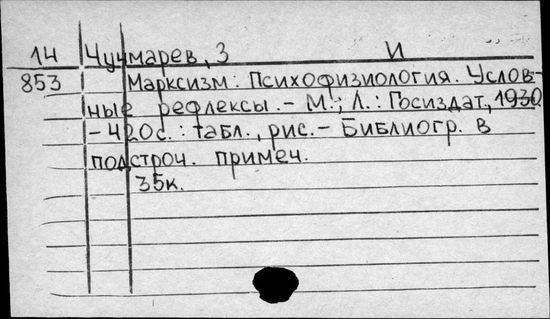 14 Чучмарев, З И
853 Марксизм: Психофизиология. Услов-
ные рефлексы. - М.; Л.: Госиздат, 1930.
- 420с.: табл., рис. - Библиогр. в
подстроч. примеч.
35к.